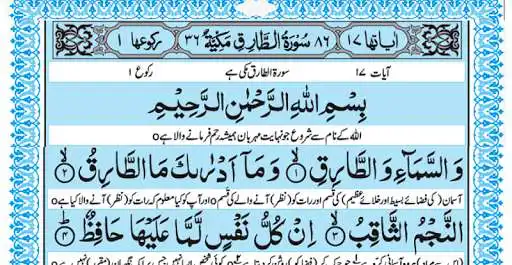 اٰیاتہا ۱۷ ۸۶ سُوْرَۃُ الطَّارِقِ مَکِّیَّۃٌ ۳۶ رکوعہا ۱
آیات ۱۷ سورۃ الطارق مکی ہے رکوع ۱
بِسْمِ اللهِ الرَّحْمٰنِ الرَّحِيْمِ
اللہ کے نام سے شروع جو نہایت مہربان ہمیشہ رحم فرمانے والا ہے o
وَالسَّمَآءِ وَالطَّارِقِ ۙ﴿۱﴾ وَمَاۤ اَدْرٰىكَ مَا الطَّارِقُ ۙ﴿۲﴾
آسمان (کی فضائے بسیط اور خلائے عظیم) کی قَسم اور رات کو (نظر) آنے والے کی قَسم o اور آپ کو کیا معلوم کہ رات کو (نظر) آنے والا کیا ہے o
النَّجْمُ الثَّاقِبُ ۙ﴿۳﴾ اِنْ كُلُّ نَفْسٍ لَّمَّا عَلَيْهَا حَافِظٌ ؕ﴿۴﴾